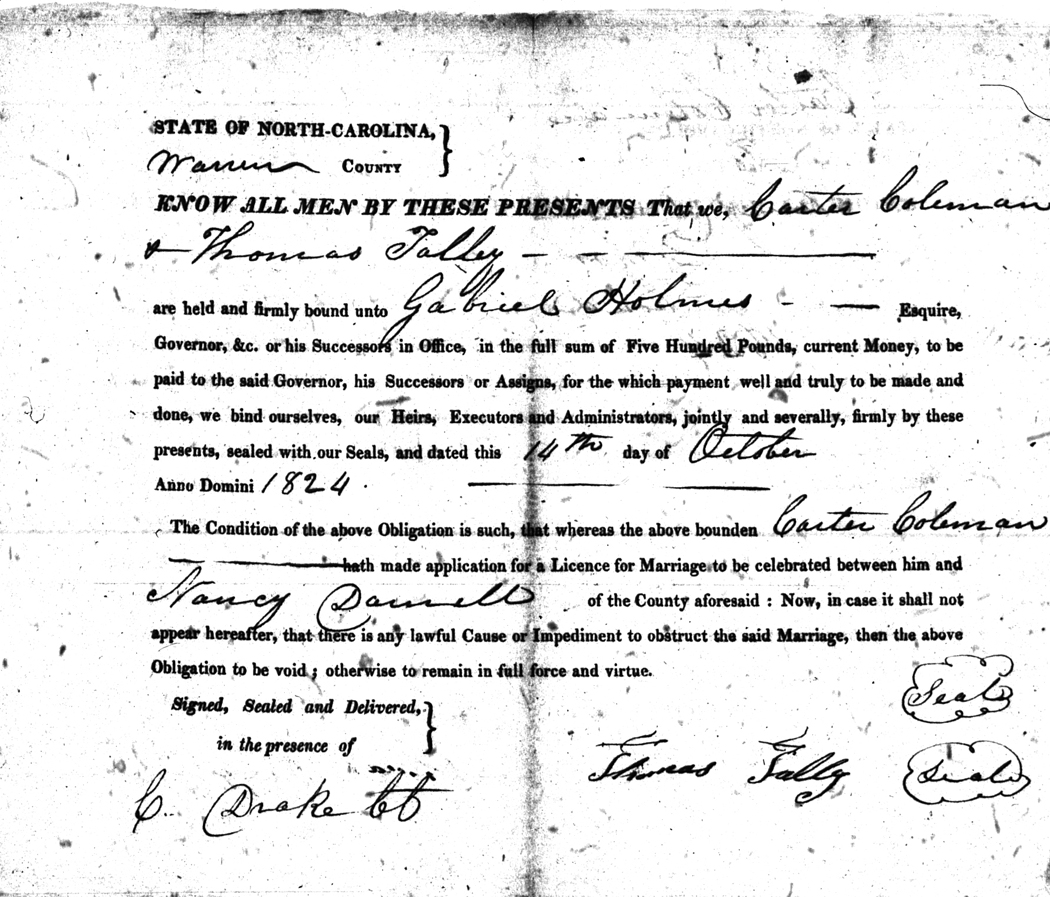 STATE OF NORTH-CAROLINA,
Warren COUNTY
KNOW ALL MEN BY THESE PRESENTS That we, Carter Coleman
& Thomas Talley
are held and firmly bound unto Gabriel Holmes Esquire,
Governor, &c. or his Successors in Office, in the full sum of Five Hundred Pounds, current Money, to be
paid to the said Governor, his Successors or Assigns, for the which payment well and truly to be made and
done, we bind ourselves, our Heirs, Executors and Administrators, jointly and severally, firmly by these
presents, sealed with our Seals, and dated this 14th day of October
Anno Domini 1824.
The Condition of the above Obligation is such, that whereas the above bounden Carter Coleman
hath made application for a Licence for Marriage to be celebrated between him and
Nancy Darnell of the County aforesaid : Now, in case it shall not
appear hereafter, that there is any lawful Cause or Impediment to obstruct the said Marriage, then the above
Obligation to be void ; otherwise to remain in full force and virtue.
Signed, Sealed and Delivered,
in the presence of
Seal
Thomas Tally Seal
C. Drake